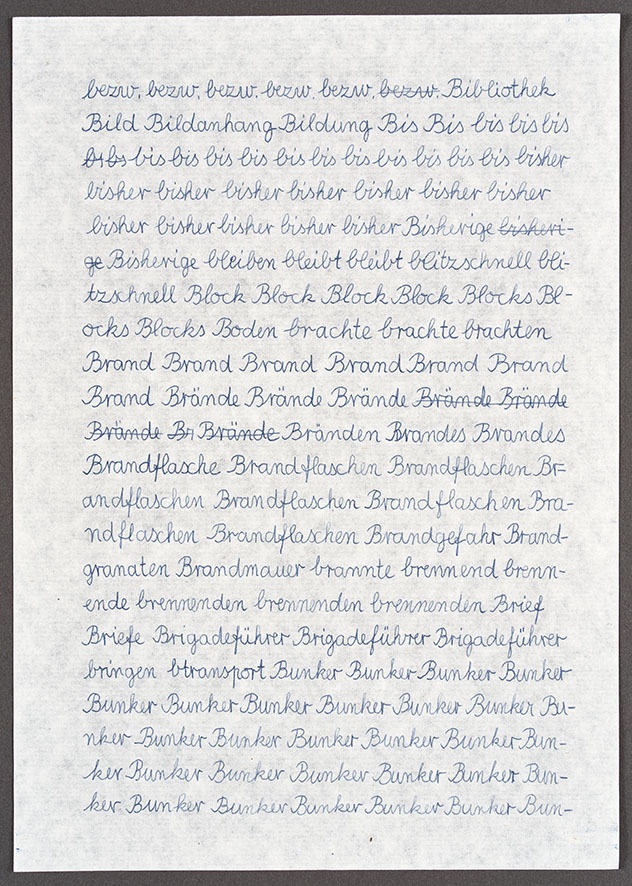 bezw. bezw. bezw. bezw. bezw. bezw. Bibliothek
Bild Bildanhang Bildung Bis Bis bis bis bis
bis bis bis bis bis bis bis bis bis bis bis bis bisher
bisher bisher bisher bisher bisher bisher bisher
bisher bisher bisher bisher bisher Bisherige bisheri-
ge Bisherige bleiben bleibt bleibt blitzschnell bli-
tzschnell Block Block Block Block Blocks Bl-
ocks Blocks Boden brachte brachte brachten
Brand Brand Brand Brand Brand Brand
Brand Brände Brände Brände Brände Brände
Brände Br Brände Bränden Brandes Brandes
Brandflasche Brandflaschen Brandflaschen Br-
andflaschen Brandflaschen Brandflaschen Bra-
ndflaschen Brandflaschen Brandgefahr Brand-
granaten Brandmauer brannte brennend brenn-
ende brennenden brennenden brennenden Brief
Briefe Brigadeführer Brigadeführer Brigadeführer
bringen btransport Bunker Bunker Bunker Bunker
Bunker Bunker Bunker Bunker Bunker Bunker Bu-
nker Bunker Bunker Bunker Bunker Bunker Bun-
ker Bunker Bunker Bunker Bunker Bunker Bun-
ker Bunker Bunker Bunker Bunker Bunker Bun-